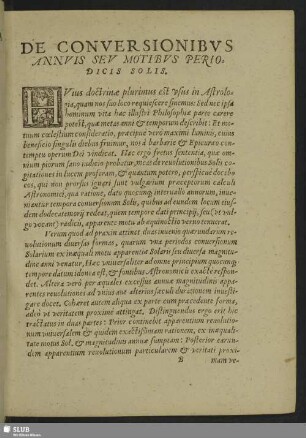 DE CONVERSIONIBVS
ANNVIS SEV MOTIBVS PERIO-
DICIS SOLIS.
HVius doctrinæ plurimus est vsus in Astrolo-
gia, quam nos suo loco requiescere sinemus: Sed nec ipsa
hominum vita hac illustri Philosophiæ parte carere
potest, quæ metas anni & temporum describit: Et mo-
tuum cœlestium consideratio, præcipuè verò maximi luminis, cuius
beneficio singulis diebus fruimur, nos à barbarie & Epicureo con-
temptu operum Dei vindicat. Hac ergo fretus sententia, quæ omnium
piorum iudicio probatur, meas de reuolutionibus Solis co-
gitationes in lucem proferam, & quantum potero, perspicuè doce-
bo eos, qui non prorsus ignari sunt vulgarium præceptorum calculi
Astronomici, qua ratione, dato quocunq́; interuallo annorum, inue-
niantur tempora conuersionum Solis, quibus ad eundem locum eius-
dem
redeat, quem tempore dati principij, seu (vt vul-
go vocant) radicis, apparente motu ab æquinoctio verno tenuerat.
Verum quod ad praxin attinet: duas inuenio quærendarum re-
uolutionum diuersas formas, quarum vna periodos conuersionum
Solarium ex inæquali motu apparentiæ Solaris seu diuersa magnitu-
dine anni venatur, Hæc vniuersaliter ad omne principium quocunq́;
tempore datum idonea est, & fontibus Astronomicis exactè respon-
det. Altera verò per æquales excessus annuæ magnitudinis appa-
rentes reuolutiones ad vnius aut alterius sæculi durationem inuesti-
gare docet. Cohæret autem aliqua ex parte cum præcedente forma,
adeò vt veritatem proximè attingat. Distinguendus ergo erit hic
tractatus in duas partes: Prior continebit apparentium reuolutio-
num vniuersalem & quidem exactissimam rationem, ex inæquali-
tate motus Sol. & magnitudinis annuæ sumptam: Posterior earun-
dem apparentium reuolutionum particularem & veritati proxi-
B
mam ve-
SLUB